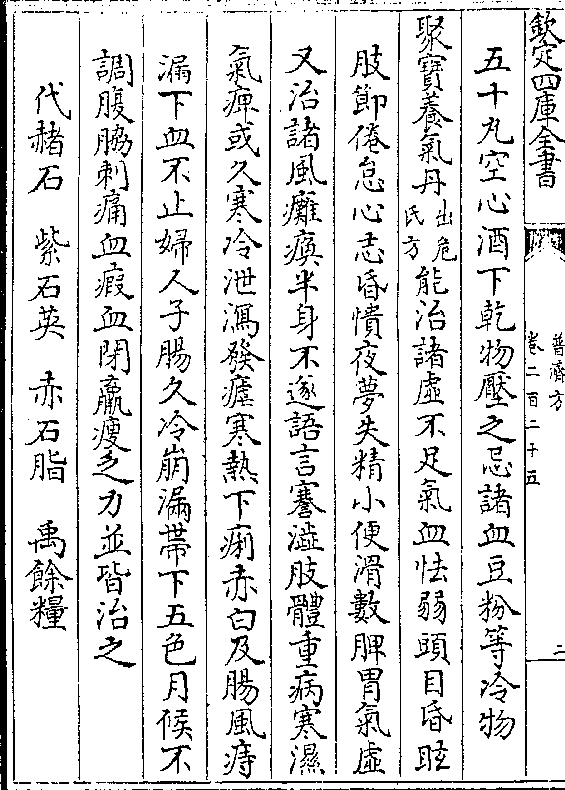 欽定四庫全書
普濟方
卷二百二十五
二
五十丸空心酒下乾物壓之忌諸血豆粉等冷物
聚寶養氣丹出危氏方能治諸虛不足氣血怯弱頭目昏眩
肢節倦怠心志昏憒夜夢失精小便滑數脾胃氣虛
又治諸風癱瘓半身不遂語言蹇澁肢體重病寒濕
氣痺或久寒冷泄瀉發瘧寒熱下痢赤白及腸風痔
漏下血不止婦人子腸久冷崩漏帶下五色月候不
調腹脇刺痛血瘕血閉羸瘦乏力並皆治之
代赭石　紫石英　赤石脂　禹餘糧